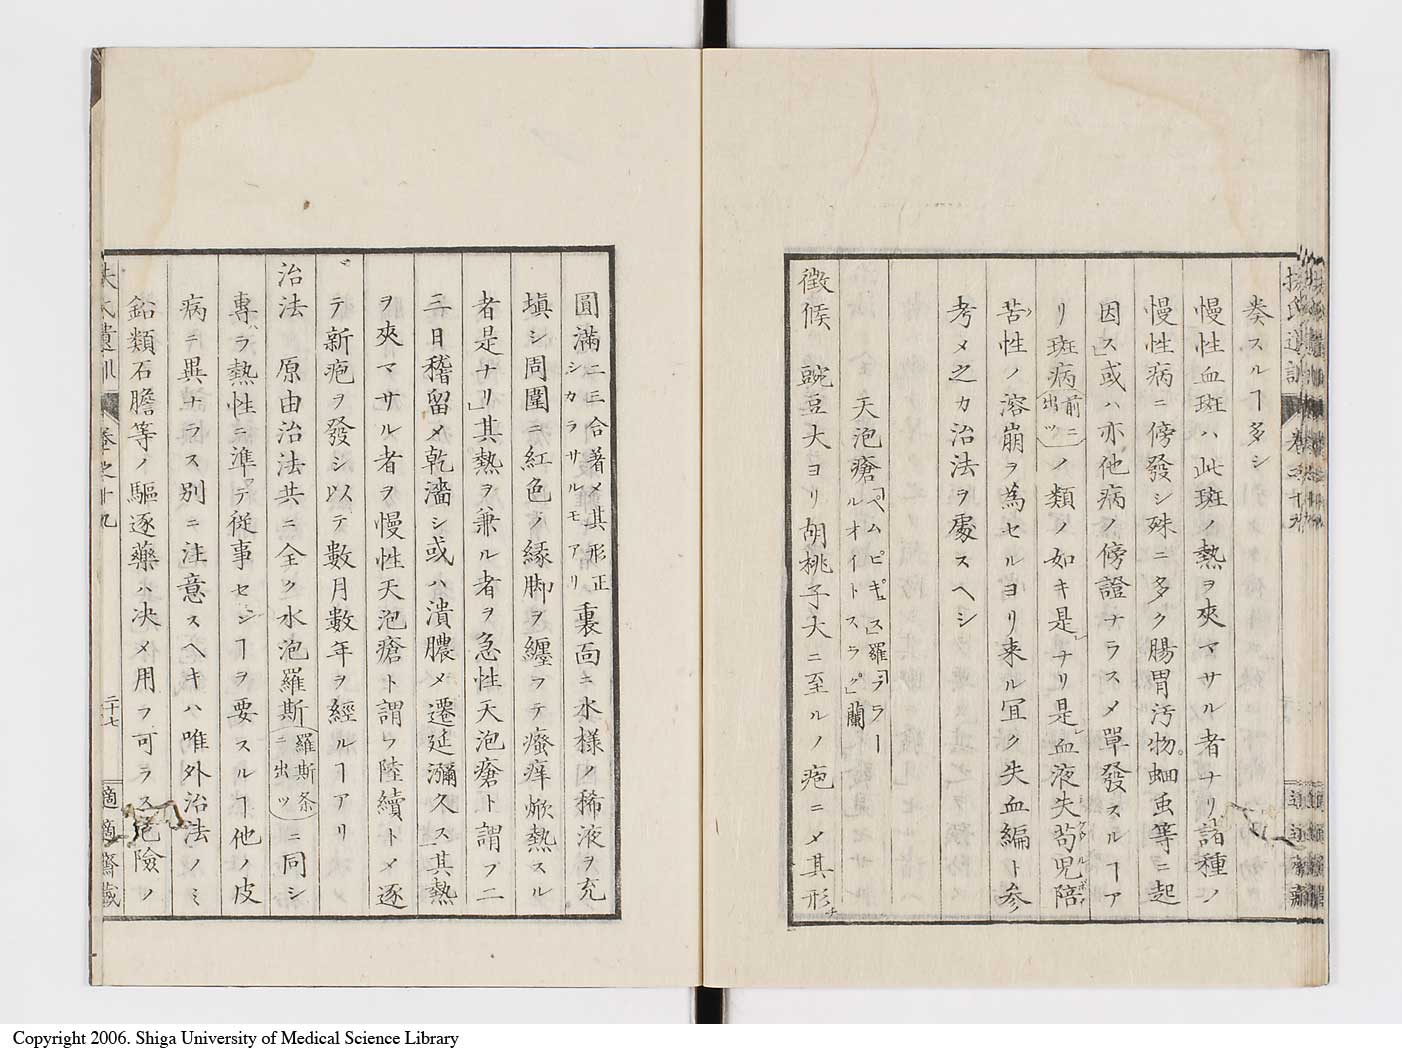 奏スルヿ多シ
慢性血斑ハ此斑ノ熱ヲ夾マサル者ナリ諸種ノ
慢性病ニ傍發シ殊ニ多ク腸胃汚物。蛔虫等ニ起
因ス」或ハ亦他病ノ傍證ナラスメ單發スルヿア
リ斑病(前ニ出ツ)ノ類ノ如キ是ナリ是血液失苟児陪
苦性ノ溶崩ヲ為セルヨリ来ル冝ク失血編ト参
考メ之カ治法ヲ處スヘシ
天泡瘡「ペムピギュス」羅「ヲラールオイトスラグ」蘭
徴候 豌豆大ヨリ胡桃子大ニ至ルノ疱ニメ其形
圓滿ニ三合著メ其形正シカラサルモアリ裏面ニ水様ノ稀液ヲ充
塡シ周圍ニ紅色ノ縁脚ヲ纏フテ瘙痒焮熱スル
者是ナリ」其熱ヲ兼ル者ヲ急性天泡瘡ト謂フ二
三日稽留メ乾濇シ或ハ潰膿メ遷延瀰久ス」其熱
ヲ夾マサル者ヲ慢性天泡瘡ト謂フ陸續トメ逐
テ新疱ヲ發シ以テ數月數年ヲ經ルヿアリ
治法 原由治法共ニ全ク水泡羅斯(羅斯条ニ出ツ)ニ同シ
專ラ熱性ニ準テ従事センヿヲ要スルヿ他ノ皮
病ニ異ナラス別ニ注意スヘキハ唯外治法ノミ
鉛類石膽等ノ驅逐藥ハ决メ用フ可ラス危險ノ
扶氏遺訓 巻之十九 二十七 適適齋藏
Copyright 2006. Shiga University of Medical Science Library